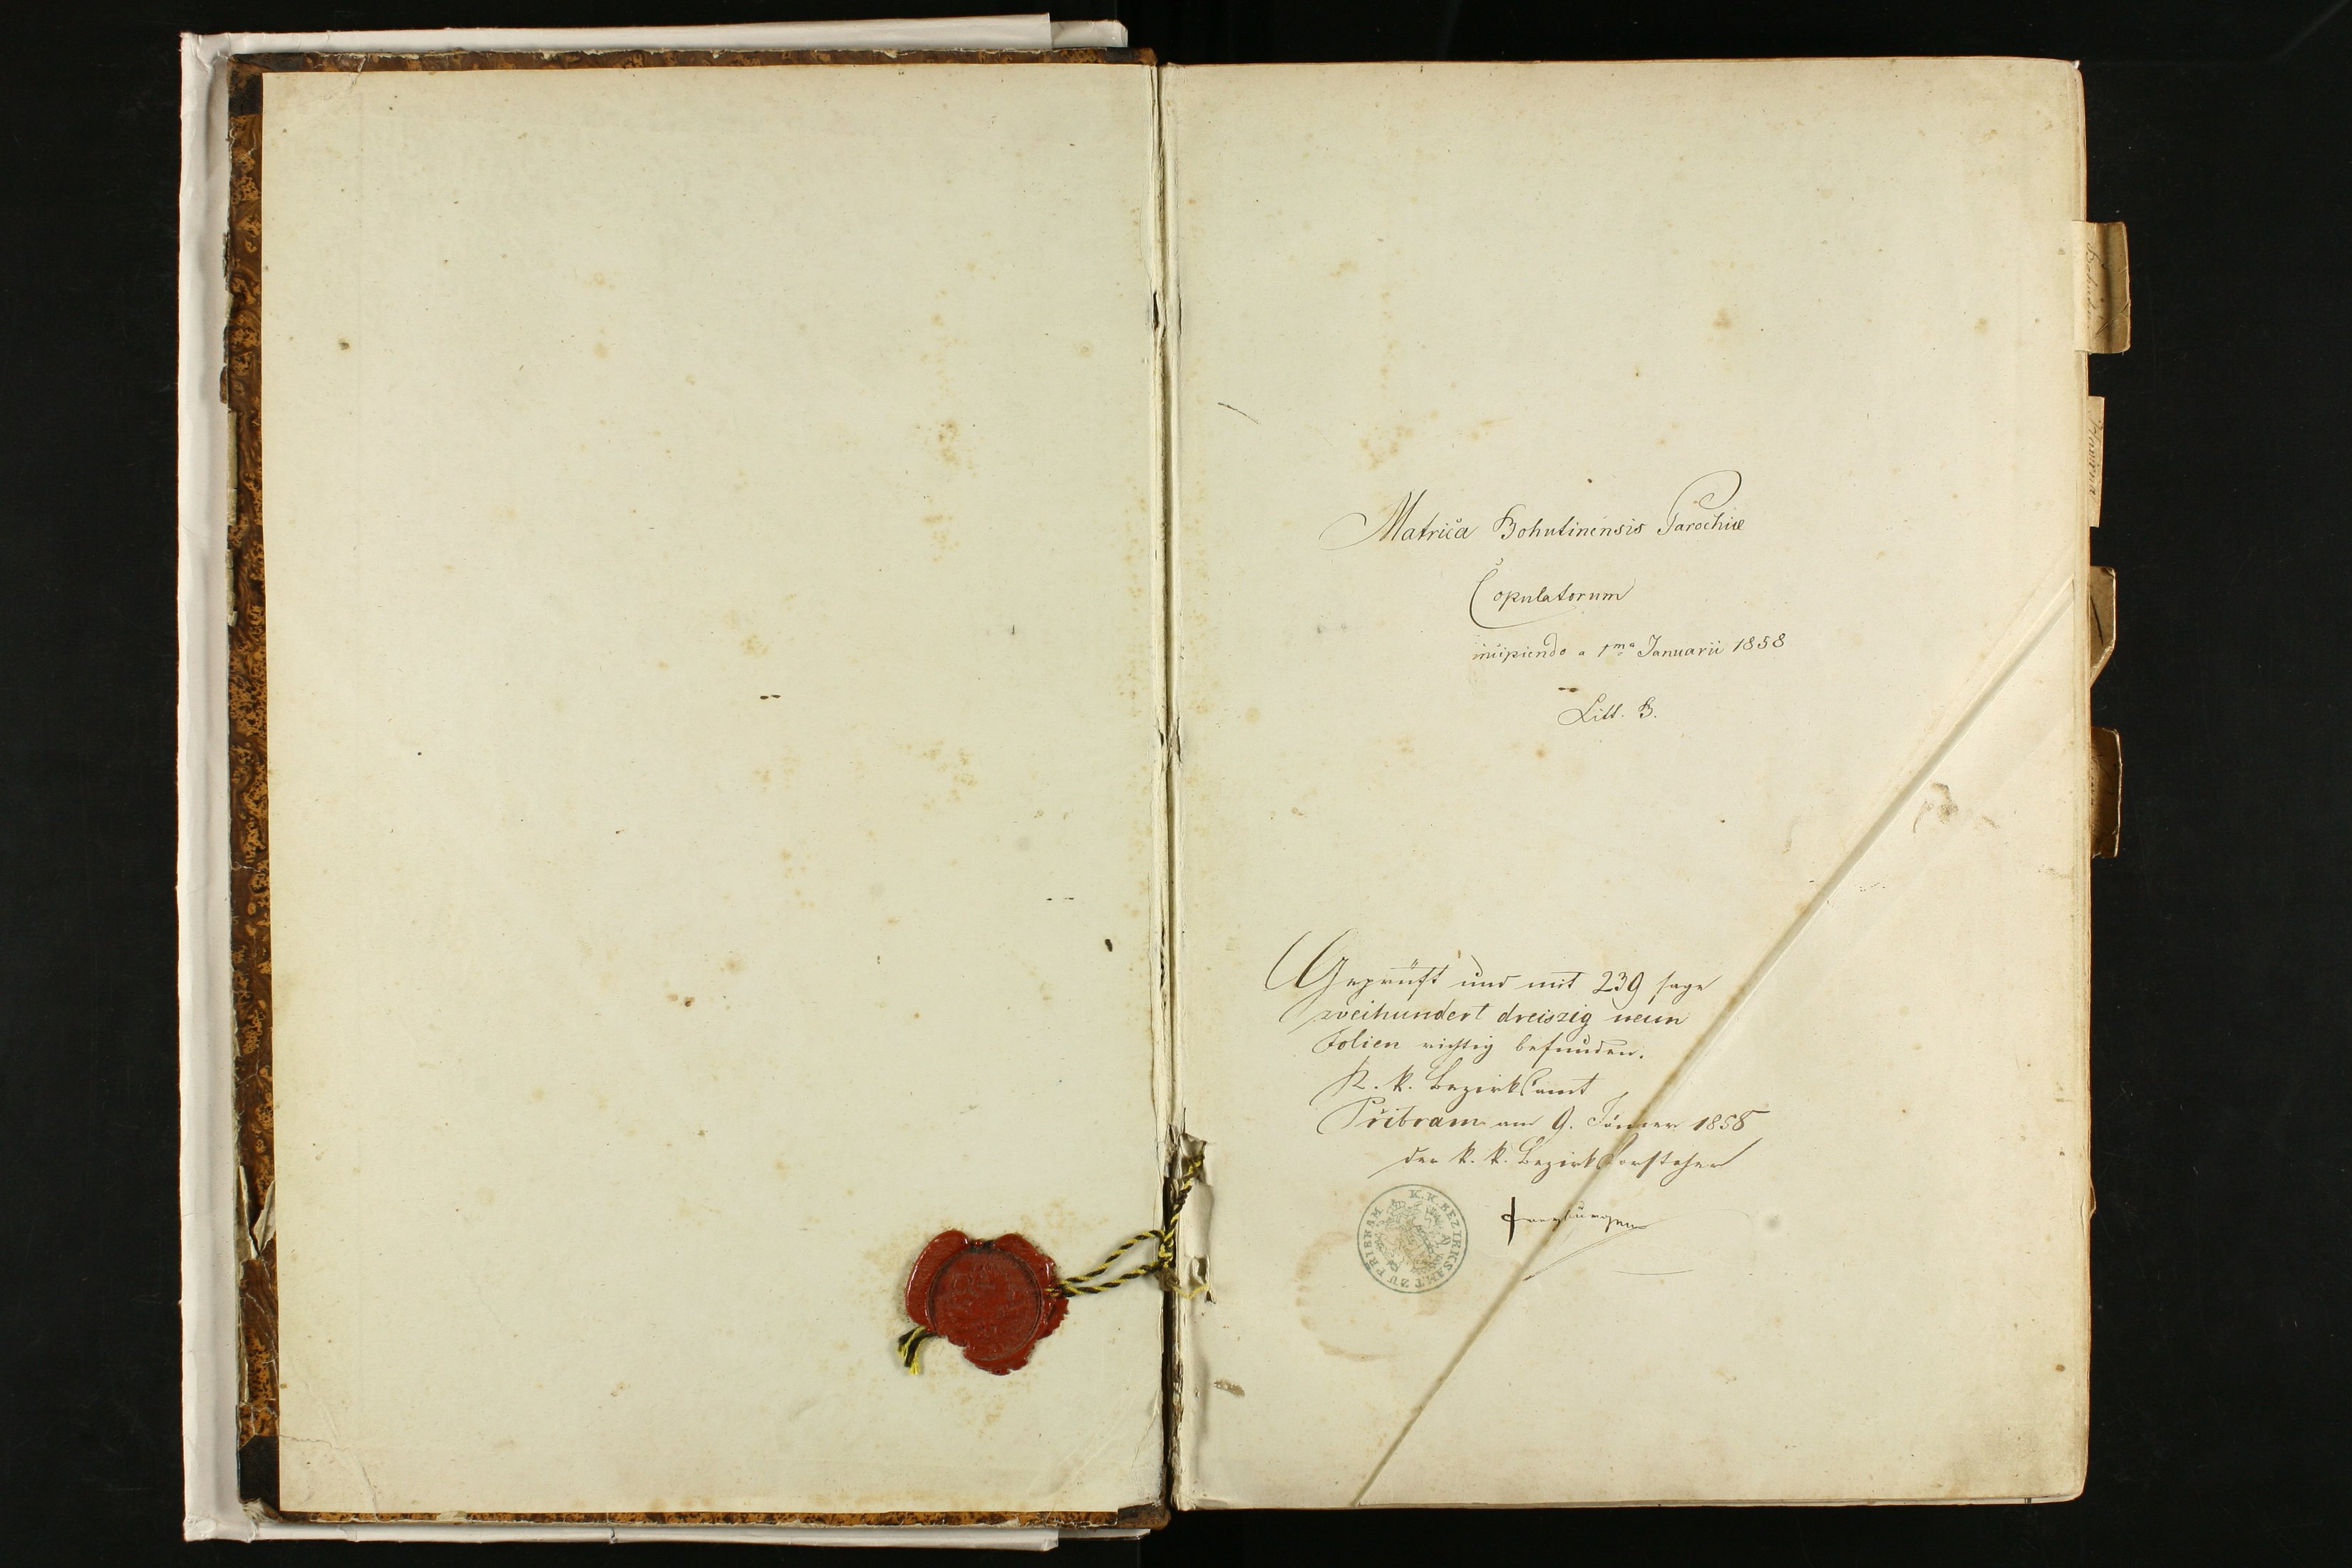 Matrica Bohutinensis Parochiæ
Copulatorum
incipiendo a 1ma Januarii 1858
Litt. B.
Geprüft und mit 239 sage
zweihundert dreiszig neun
Folien richtig befunden.
K. k. Bezirksamt
Přibram am 9. Jänner 1858
der k. k. Bezirksvorsteher
K. K. BEZIRKSAMT ZU PRIBRAM